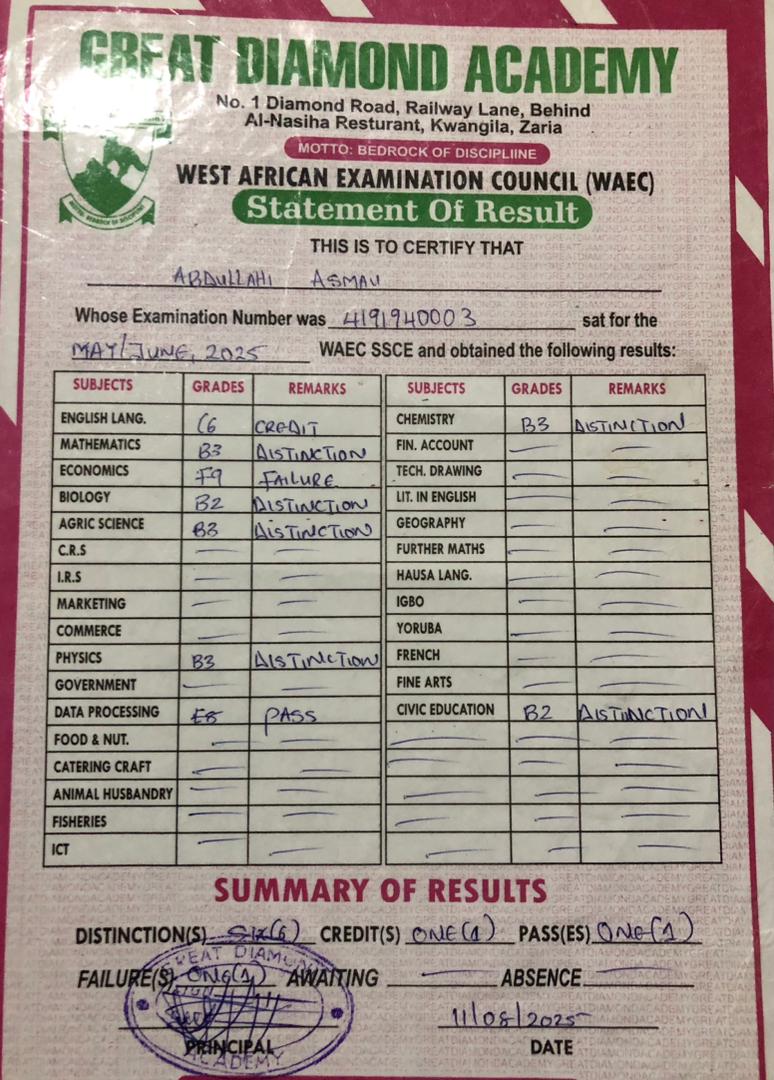 GREAT DIAMOND ACADEMY
No. 1 Diamond Road, Railway Lane, Behind
Al-Nasiha Resturant, Kwangila, Zaria
MOTTO: BEDROCK OF DISCIPLIINE
WEST AFRICAN EXAMINATION COUNCIL (WAEC)
Statement Of Result
MOTTO: BEDROCK OF DISCIPLINE
THIS IS TO CERTIFY THAT
ABDULLAHI ASMAU
Whose Examination Number was 4191940003 sat for the
MAY/JUNE, 2025 WAEC SSCE and obtained the following results:
SUBJECTS GRADES REMARKS SUBJECTS GRADES REMARKS
ENGLISH LANG. C6 CREDIT CHEMISTRY B3 DISTINCTION
MATHEMATICS B3 DISTINCTION FIN. ACCOUNT
ECONOMICS F9 FAILURE TECH. DRAWING
BIOLOGY B2 DISTINCTION LIT. IN ENGLISH
AGRIC SCIENCE B3 DISTINCTION GEOGRAPHY
C.R.S FURTHER MATHS
I.R.S HAUSA LANG.
MARKETING IGBO
COMMERCE YORUBA
PHYSICS B3 DISTINCTION FRENCH
GOVERNMENT FINE ARTS
DATA PROCESSING E8 PASS CIVIC EDUCATION B2 DISTINCTION
FOOD & NUT.
CATERING CRAFT
ANIMAL HUSBANDRY
FISHERIES
ICT
SUMMARY OF RESULTS
DISTINCTION(S) SIX(6) CREDIT(S) ONE(1) PASS(ES) ONE(1)
FAILURE(S) ONE(1) AWAITING ABSENCE
GREAT DIAMOND
ACADEMY
11/08/2025
PRINCIPAL DATE